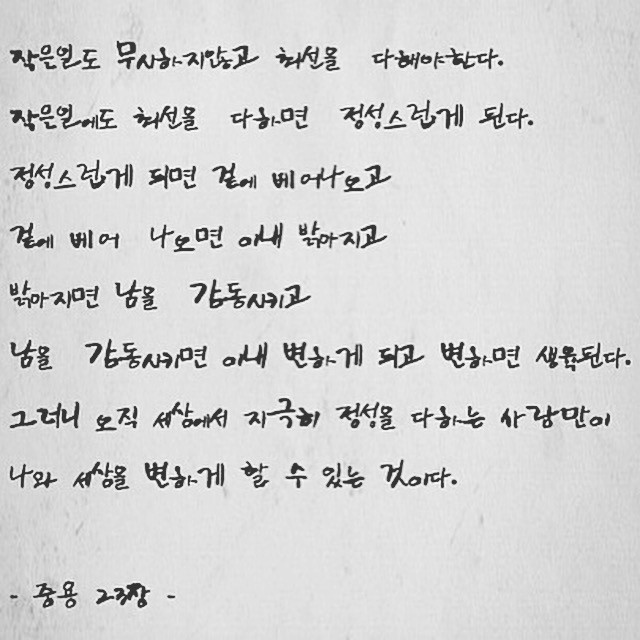 작은일도 무시하지않고 최선을 다해야한다.
작은일에도 최선을 다하면 정성스럽게 된다.
정성스럽게 되면 겉에 베어나오고
겉에 베어 나오면 이내 밝아지고
밝아지면 남을 감동시키고
남을 감동시키면 이내 변하게 되고 변하면 생육된다.
그러니 오직 세상에서 지극히 정성을 다하는 사람만이
나와 세상을 변하게 할 수 있는 것이다.
- 중용 23장 -